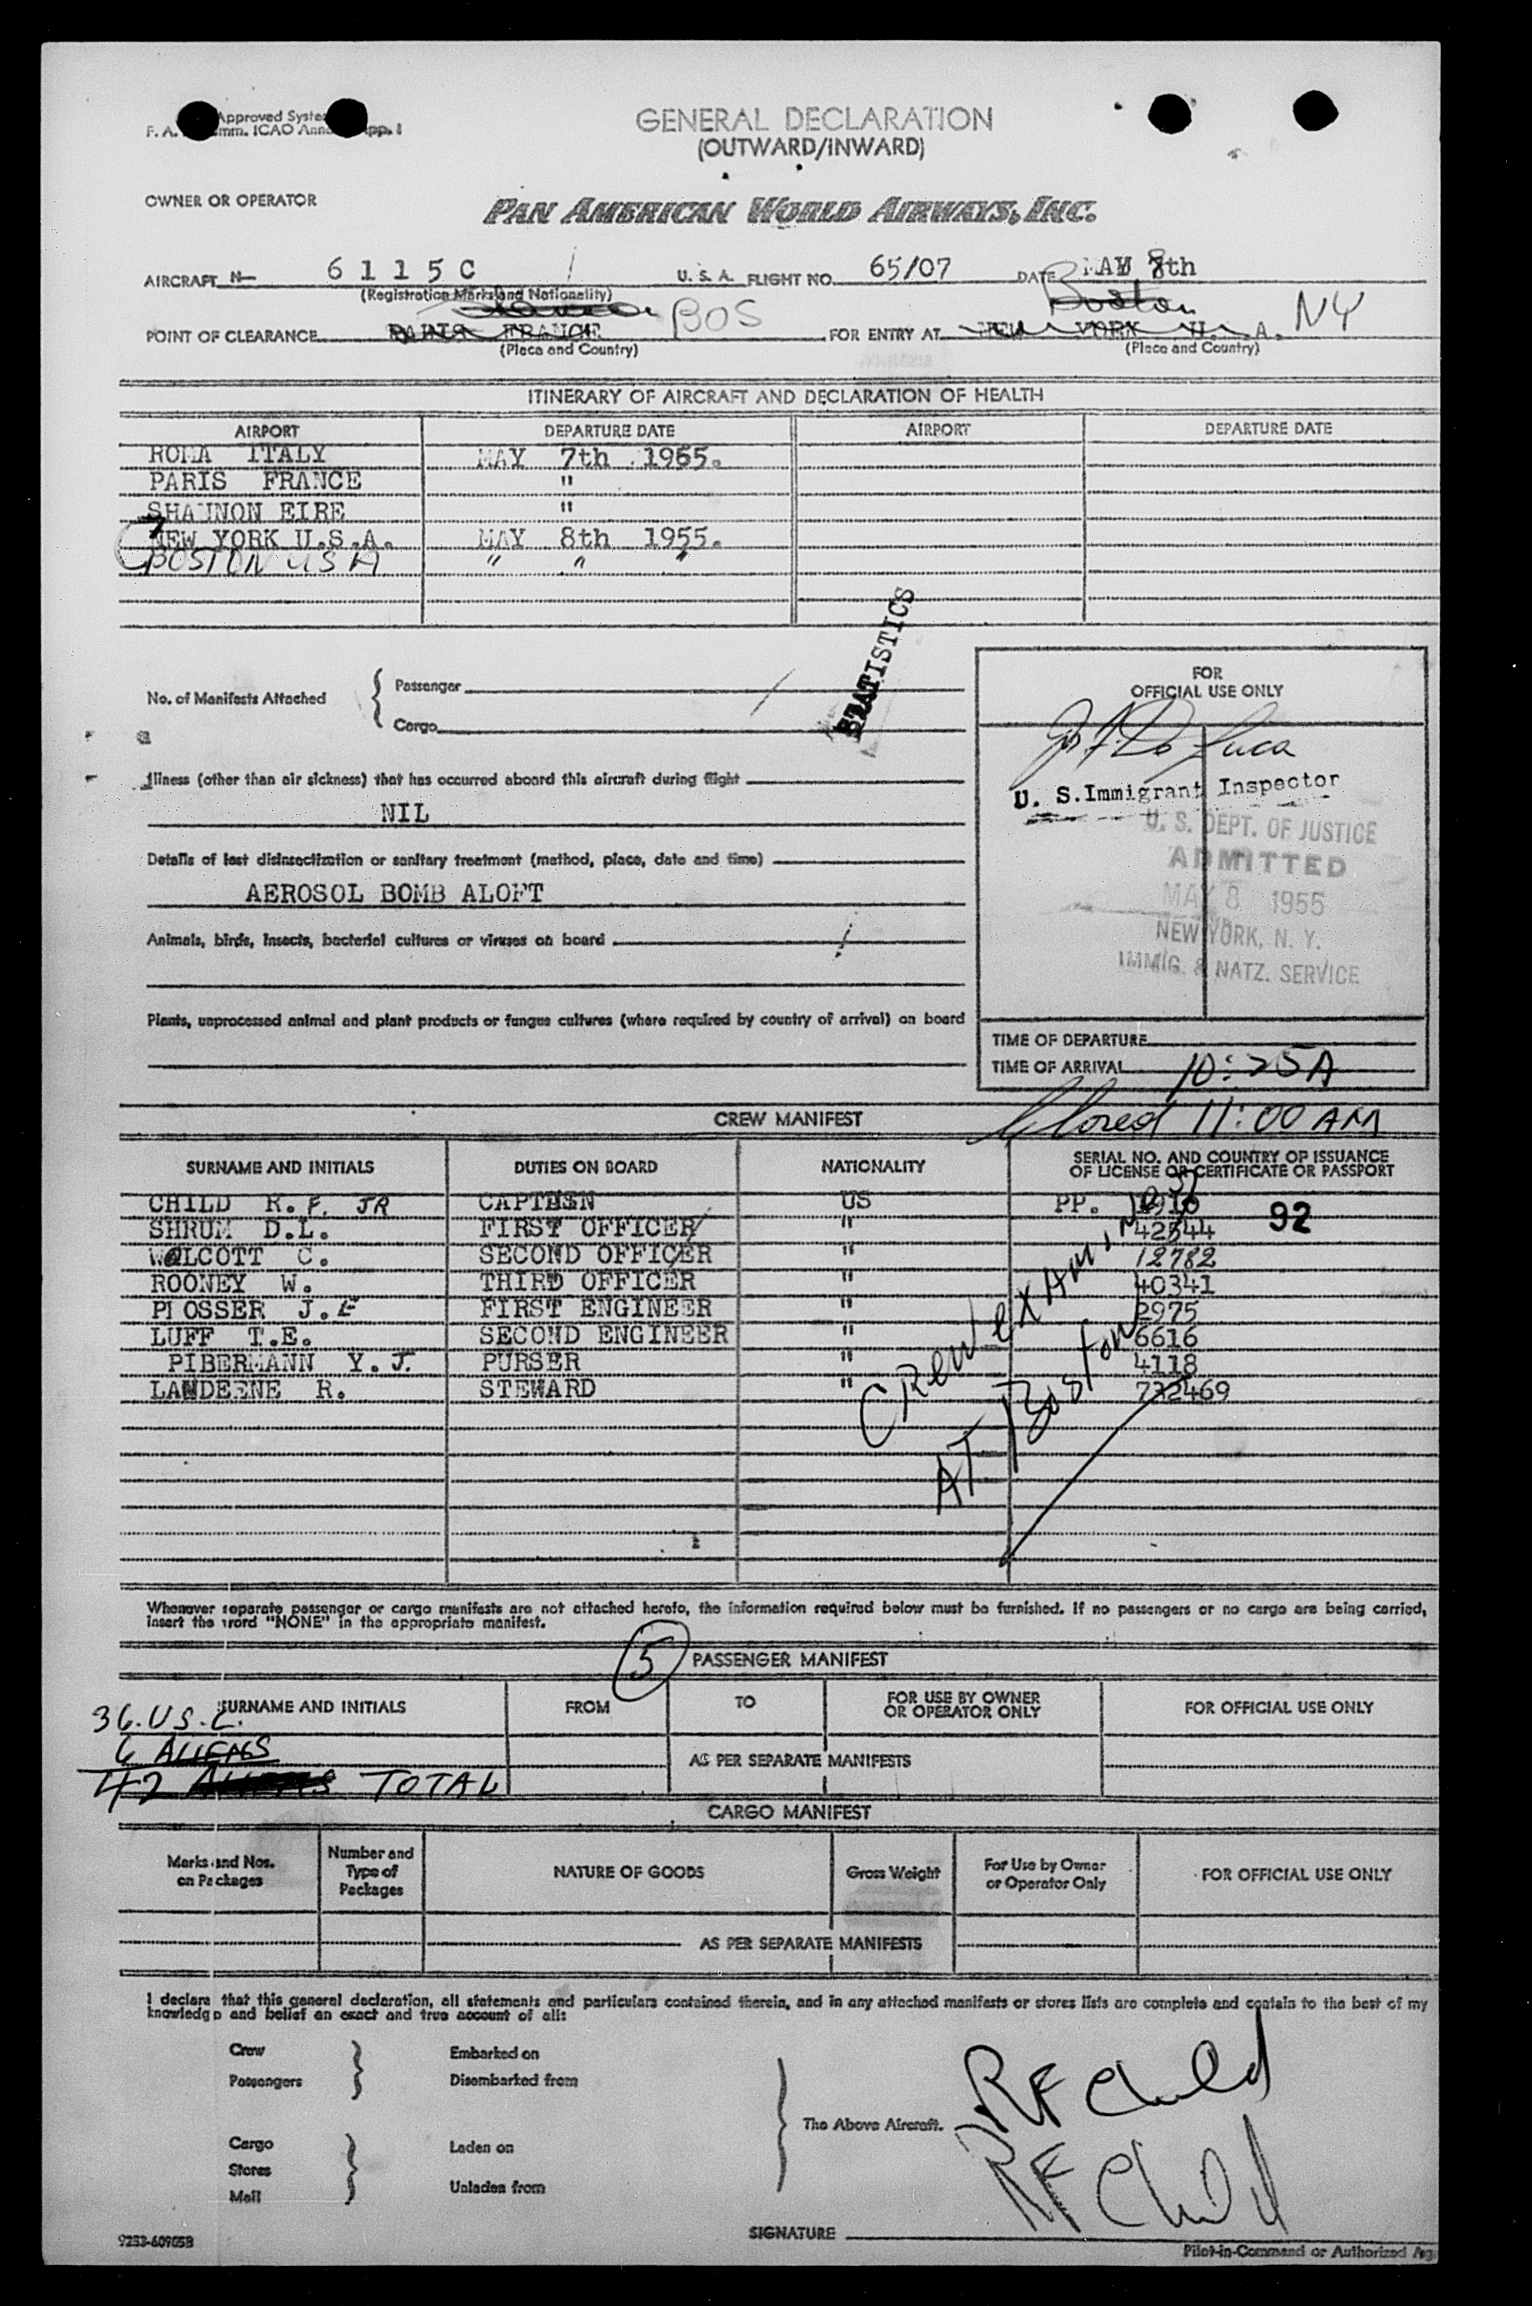 Approved System
F. A. Comm. ICAO Annex App. I
GENERAL DECLARATION
(OUTWARD/INWARD)
OWNER OR OPERATOR
PAN AMERICAN WORLD AIRWAYS, INC.
AIRCRAFT N- 6 1 1 5 C U. S. A. FLIGHT NO. 65/07 DATE MAY 8th
(Registration Marks and Nationality)
Boston
POINT OF CLEARANCE PARIS FRANCE BOS FOR ENTRY AT NEW YORK U. S. A. NY
(Place and Country) (Place and Country)
ITINERARY OF AIRCRAFT AND DECLARATION OF HEALTH
AIRPORT DEPARTURE DATE AIRPORT DEPARTURE DATE
ROMA ITALY MAY 7th 1955.
PARIS FRANCE "
SHANNON EIRE "
NEW YORK U.S.A. MAY 8th 1955.
BOSTON USA " " "
STATISTICS
No. of Manifests Attached { Passenger
Cargo
FOR
OFFICIAL USE ONLY
Jos F. De Luca
U. S. Immigrant Inspector
U. S. DEPT. OF JUSTICE
ADMITTED
MAY 8 1955
NEW YORK, N. Y.
IMMIG. & NATZ. SERVICE
Illness (other than air sickness) that has occurred aboard this aircraft during flight
NIL
Details of last disinsectization or sanitary treatment (method, place, date and time)
AEROSOL BOMB ALOFT
Animals, birds, insects, bacterial cultures or viruses on board
Plants, unprocessed animal and plant products or fungus cultures (where required by country of arrival) on board
TIME OF DEPARTURE
TIME OF ARRIVAL 10:25A
Closed 11:00 AM
CREW MANIFEST
SURNAME AND INITIALS DUTIES ON BOARD NATIONALITY SERIAL NO. AND COUNTRY OF ISSUANCE
OF LICENSE OR CERTIFICATE OR PASSPORT
CHILD R. F. JR CAPTAIN US PP. 92
SHRUM D.L. FIRST OFFICER " 42544
WOLCOTT C. SECOND OFFICER " 12782
ROONEY W. THIRD OFFICER " 40341
PLOSSER J.E FIRST ENGINEER " 2975
LUFF T.E. SECOND ENGINEER " 6616
PIBERMANN Y.J. PURSER " 4118
LANDEENE R. STEWARD " 732469
CREW EXAMINED
AT Boston
Whenever separate passenger or cargo manifests are not attached hereto, the information required below must be furnished. If no passengers or no cargo are being carried,
insert the word "NONE" in the appropriate manifest.
5 PASSENGER MANIFEST
SURNAME AND INITIALS FROM TO FOR USE BY OWNER
OR OPERATOR ONLY FOR OFFICIAL USE ONLY
36. US.C.
6 ALIENS AS PER SEPARATE MANIFESTS
42 ALIENS TOTAL
CARGO MANIFEST
Marks and Nos.
on Packages Number and
Type of
Packages NATURE OF GOODS Gross Weight For Use by Owner
or Operator Only FOR OFFICIAL USE ONLY
AS PER SEPARATE MANIFESTS
I declare that this general declaration, all statements and particulars contained therein, and in any attached manifests or stores lists are complete and contain to the best of my
knowledge and belief an exact and true account of all:
Crew Embarked on
Passengers Disembarked from
The Above Aircraft.
Cargo Laden on
Stores
Mail Unladen from
RF Child
RF Child
SIGNATURE
Pilot-in-Command or Authorized Ag
9253-60905B